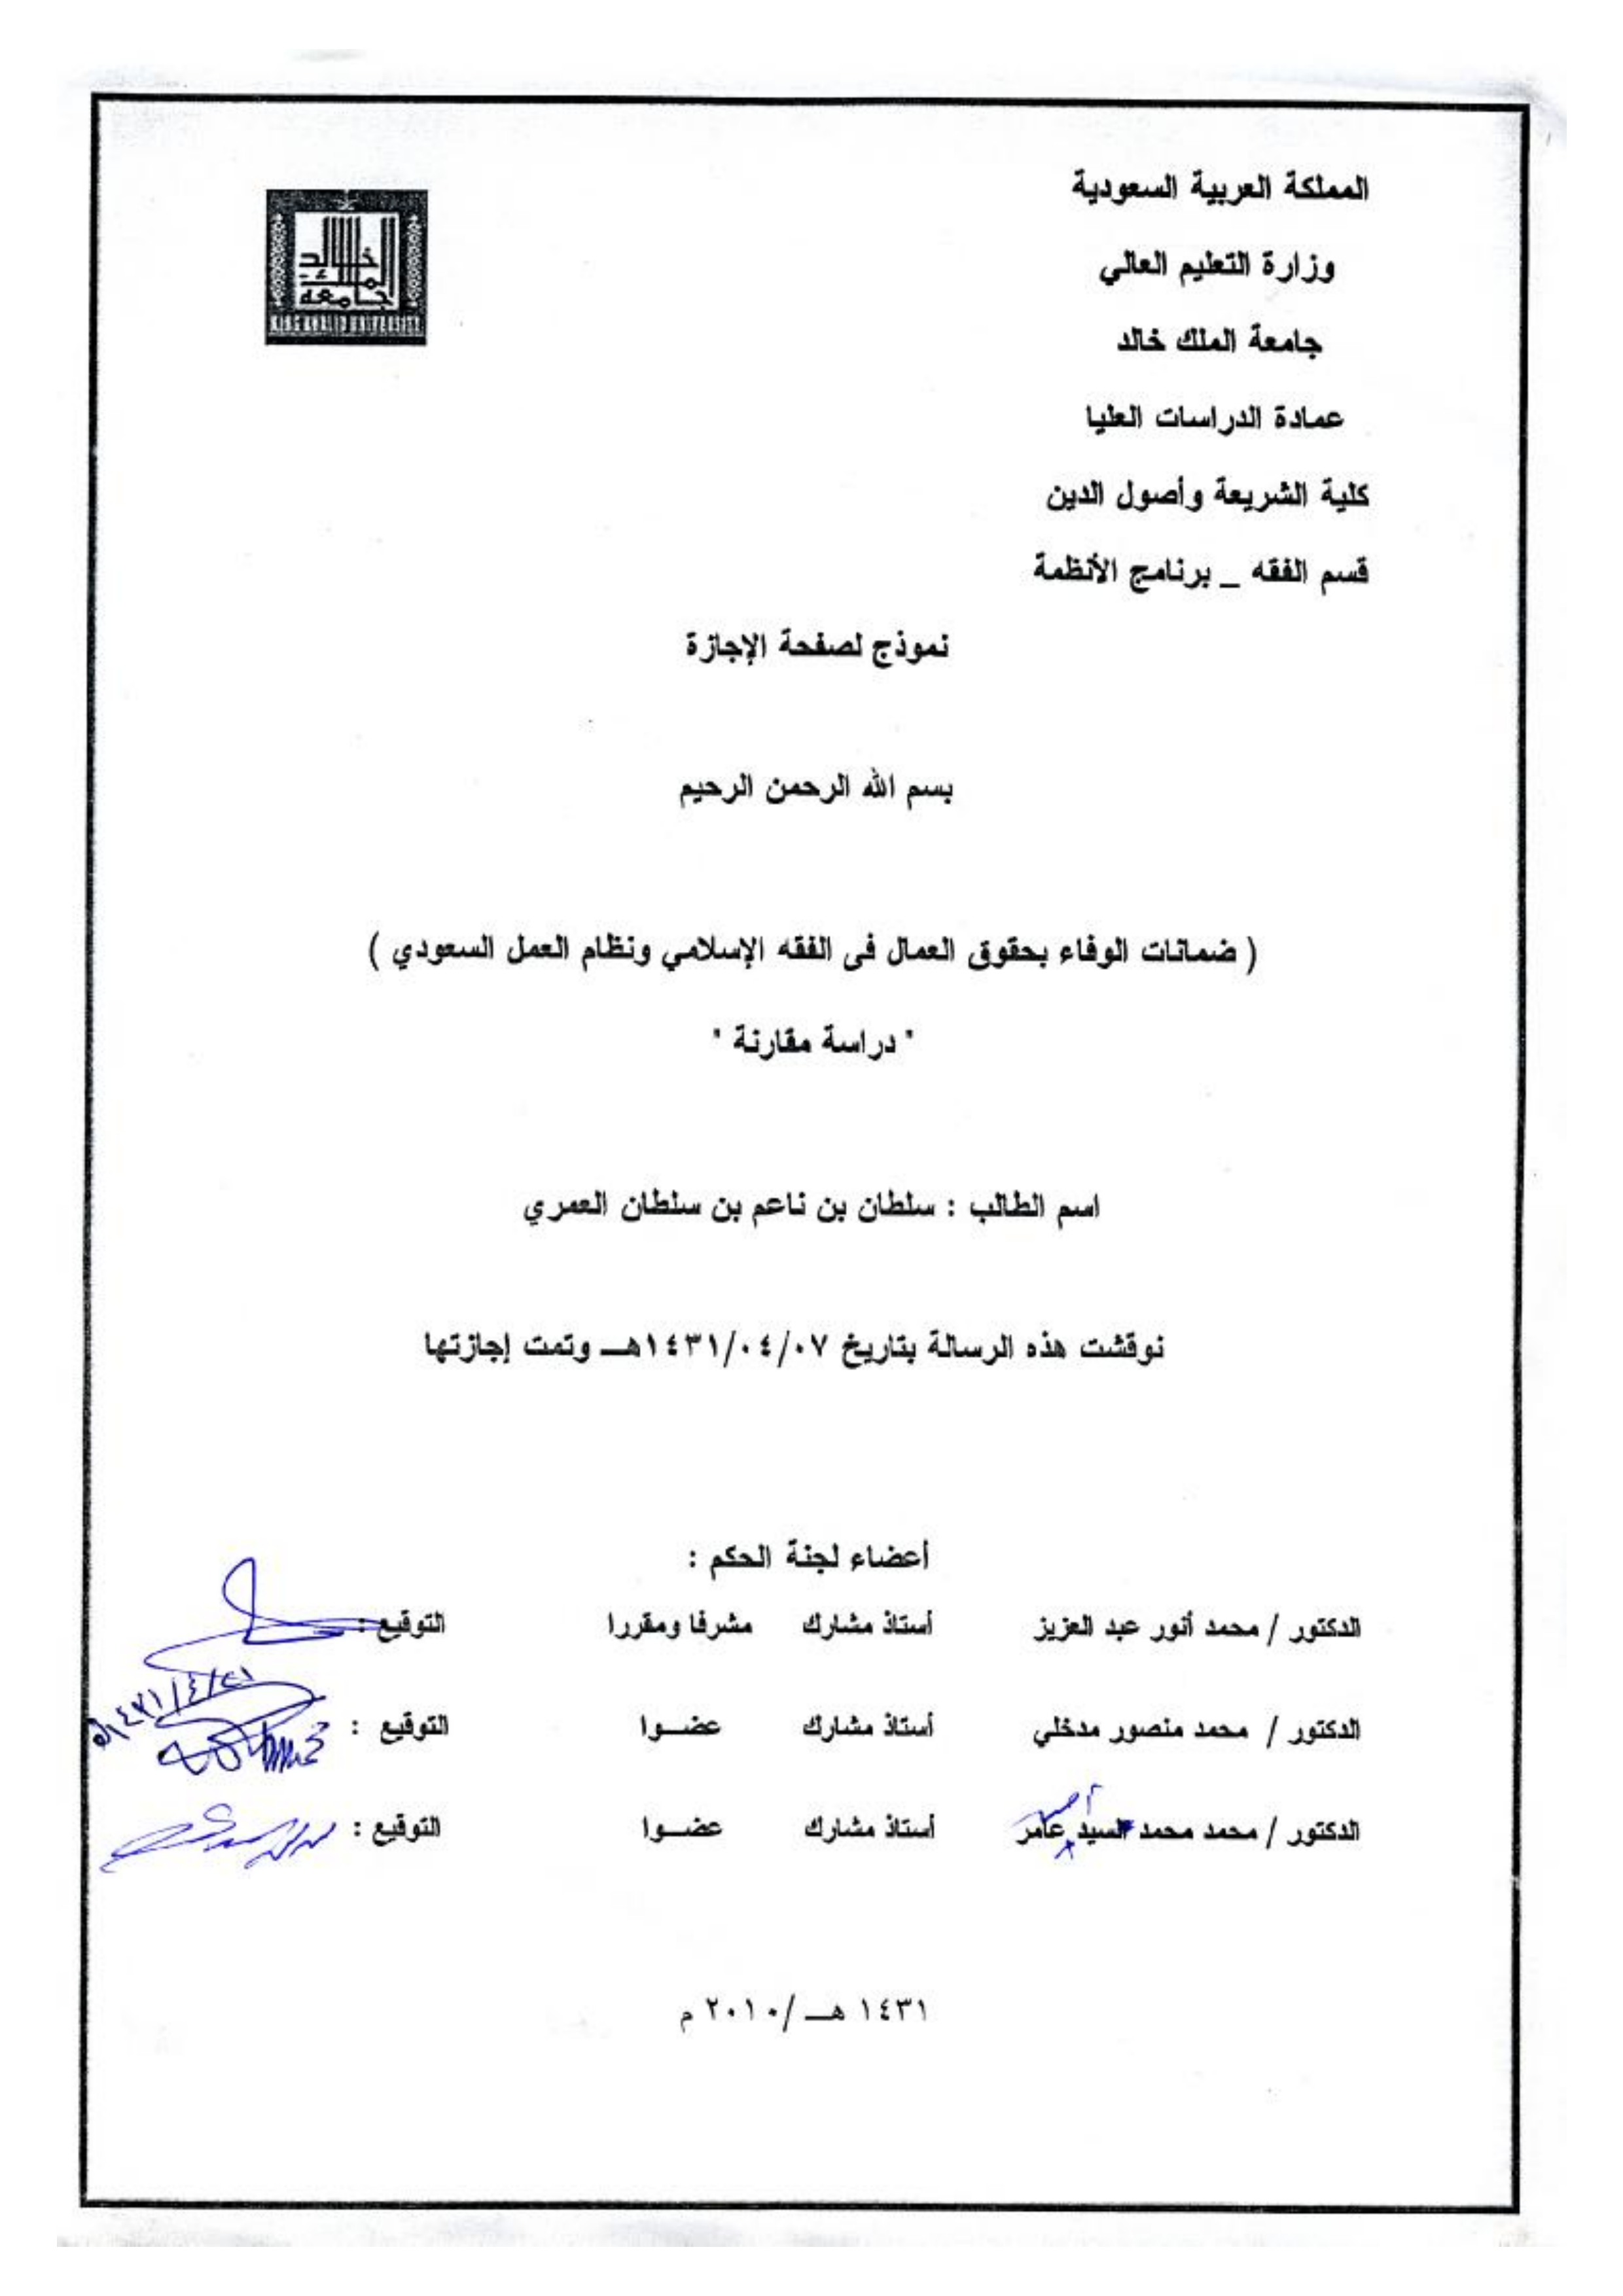 المملكة العربية السعودية
وزارة التعليم العالي
جامعة الملك خالد
عمادة الدراسات العليا
كلية الشريعة وأصول الدين
قسم الفقه _ برنامج الأنظمة
جامعة الملك خالد
نموذج لصفحة الإجازة
بسم الله الرحمن الرحيم
( ضمانات الوفاء بحقوق العمال فى الفقه الإسلامي ونظام العمل السعودي )
" دراسة مقارنة "
اسم الطالب : سلطان بن ناعم بن سلطان العمري
نوقشت هذه الرسالة بتاريخ ١٤٣١/٠٤/٠٧هـــ وتمت إجازتها
أعضاء لجنة الحكم :
الدكتور / محمد أنور عبد العزيز أستاذ مشارك مشرفا ومقررا التوقيع :
الدكتور / محمد منصور مدخلي أستاذ مشارك عضــوا التوقيع :
الدكتور / محمد محمد السيد عامر أستاذ مشارك عضــوا التوقيع :
١٤٣١ هـــ /٢٠١٠ م